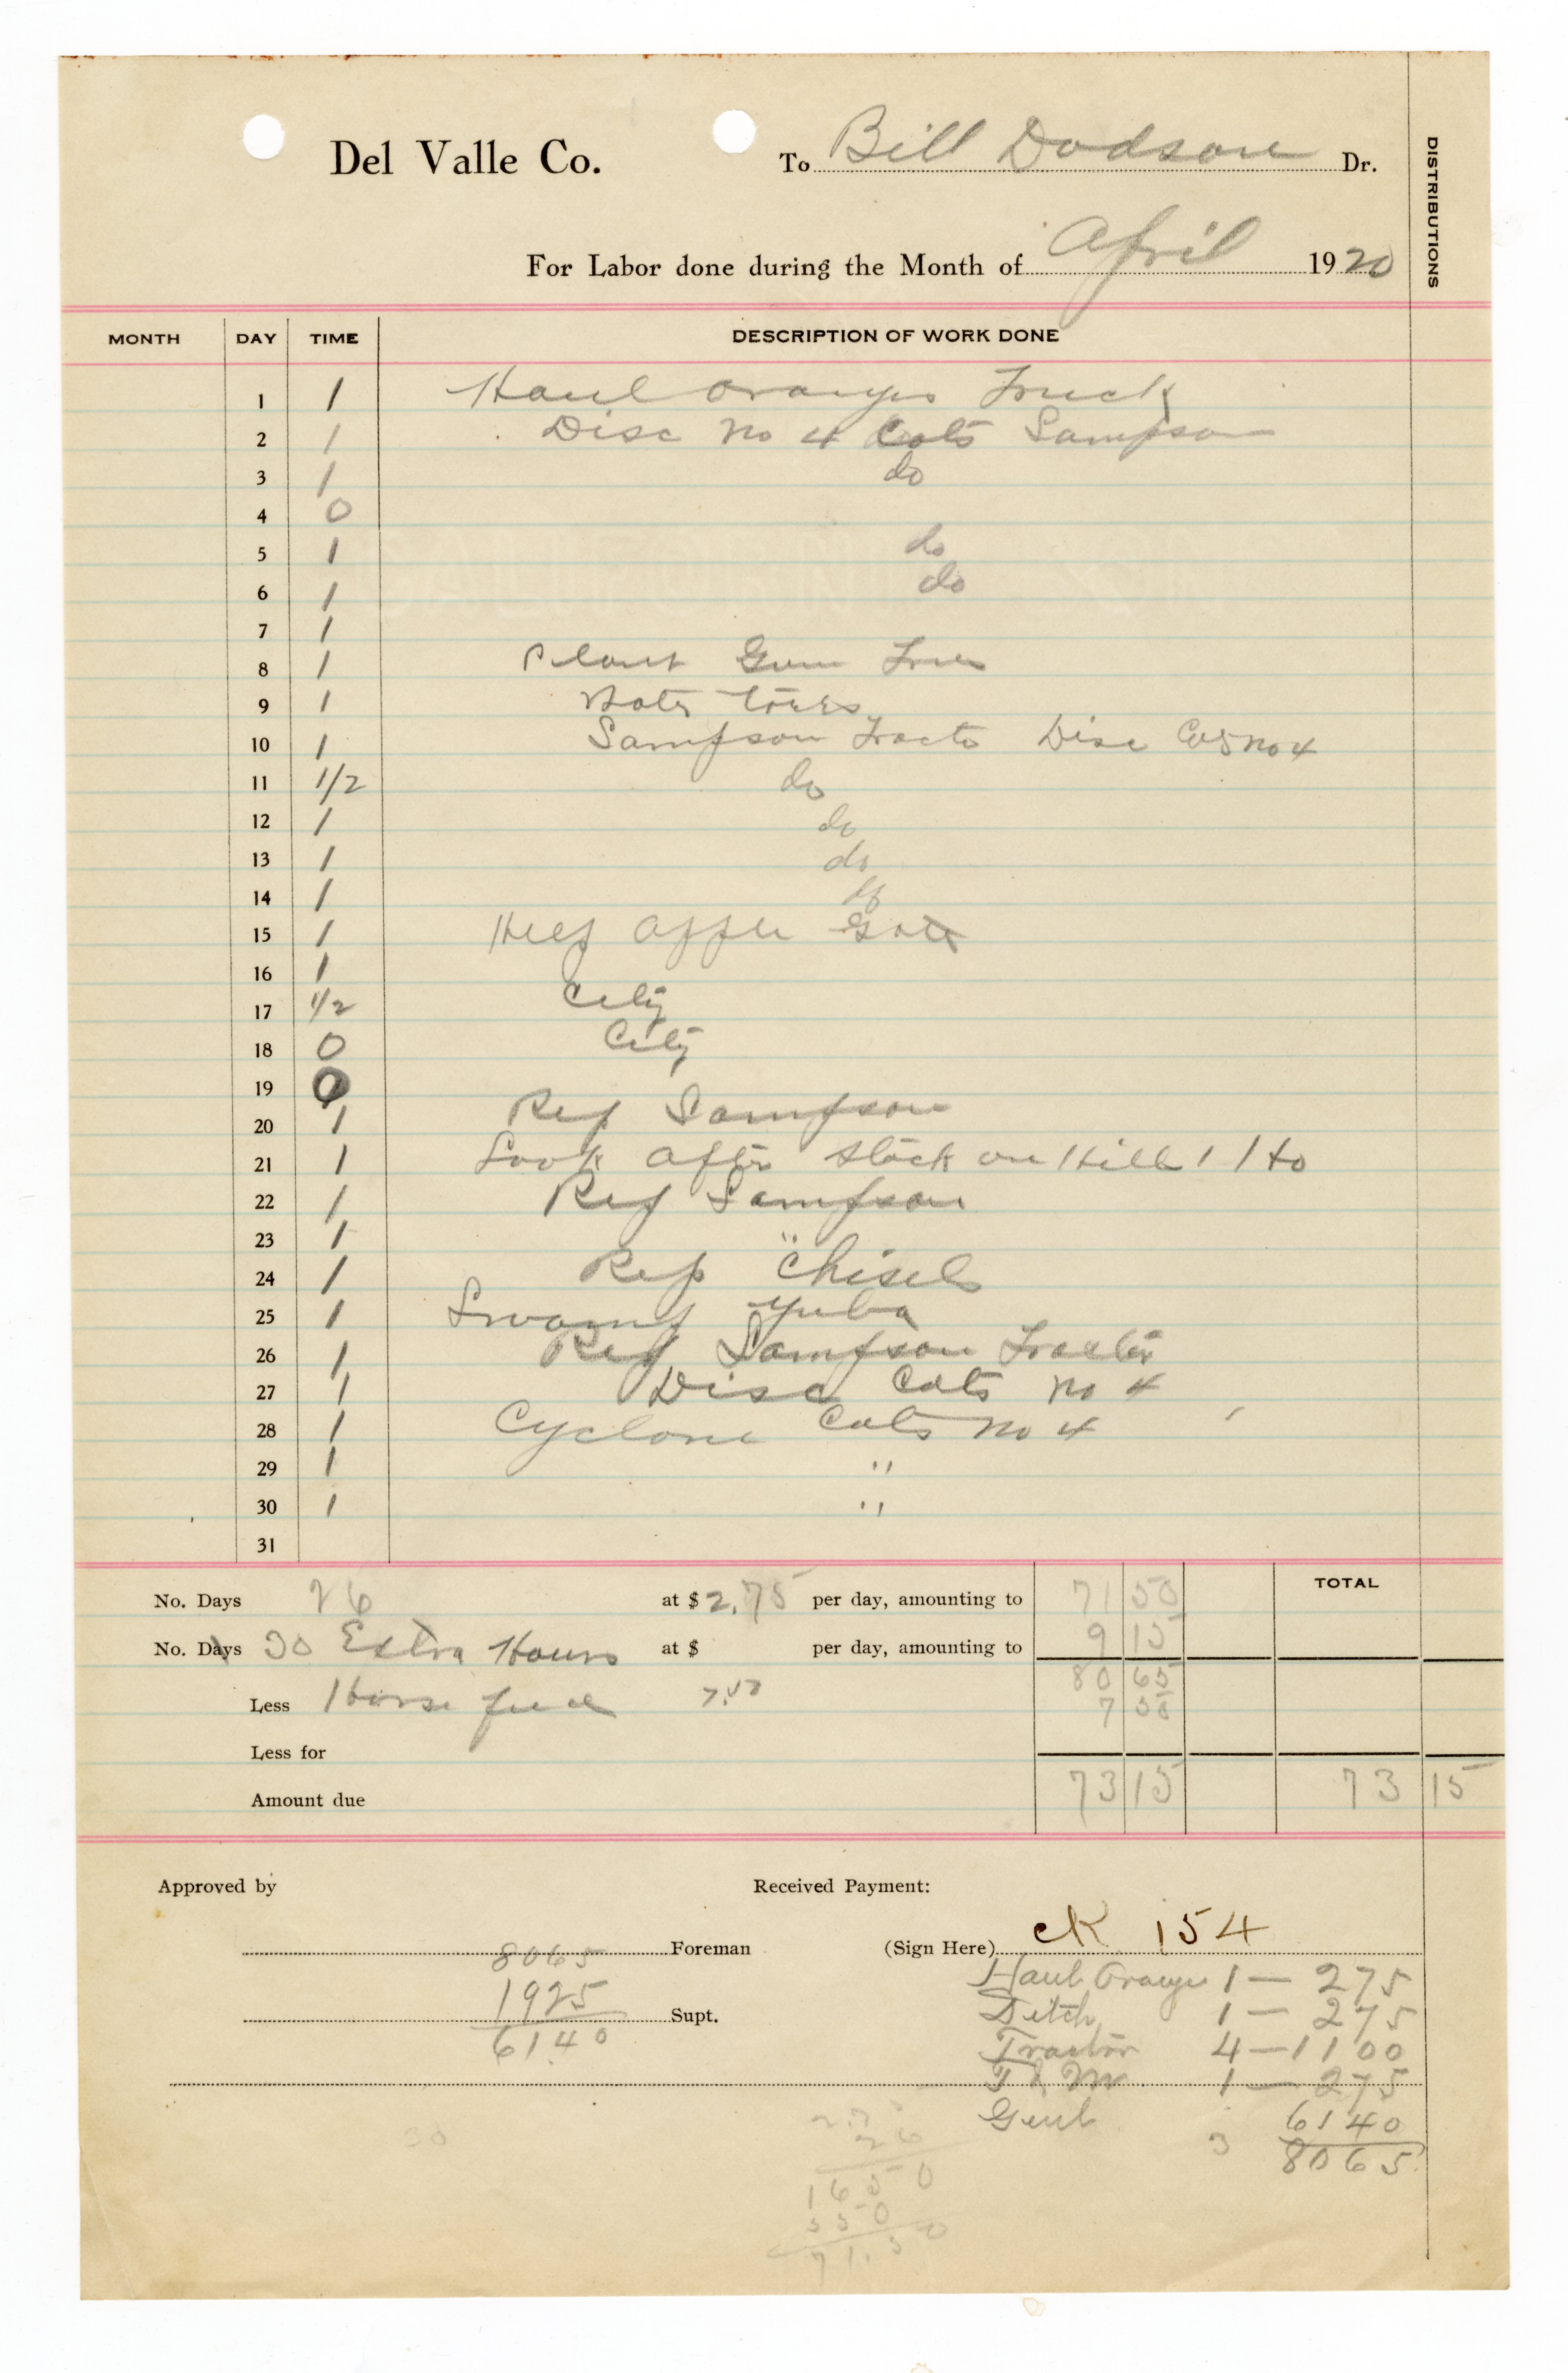 Del Valle Co. To Bill Dodson Dr.
DISTRIBUTIONS
For Labor done during the Month of April 1920
MONTH DAY TIME DESCRIPTION OF WORK DONE
1 1 Haul oranges Truck
2 1 Disc No 4 Cots Sampson
3 1 do
4 0
5 1 do
6 1 do
7 1
8 1 Plant Gum Trees
9 1 Water trees
10 1 Sampson Tracto Disc Cots No 4
11 1/2 do
12 1 do
13 1 do
14 1
15 1 Help Apple Gate
16 1
17 1/2 City
18 0 City
19 0
20 1 Rep Sampson
21 1 Look after stock on Hill 1
22 1 Rep Sampson
23 1 "
24 1 Rep Chisels
25 1 Swamp Yuba
26 1 Rep Sampson Tractor
27 1 Disc Cots No 4
28 1 Cyclone Cots No 4
29 1 "
30 1 "
31
TOTAL
No. Days 26 at $ 2.75 per day, amounting to 71 50
No. Days 30 Extra Hours at $ per day, amounting to 9 15
80 65
Less Horse feed 7.50 7 50
Less for
Amount due 73 15 73 15
Approved by Received Payment:
8065 Foreman (Sign Here) CK 154
Haul Orange 1 — 275
1925 Supt. Ditch 1 — 275
6140 Tractor 4 — 1100
1 — 275
Genl 6140
30 3 8065
2.75
26
1650
550
71.50